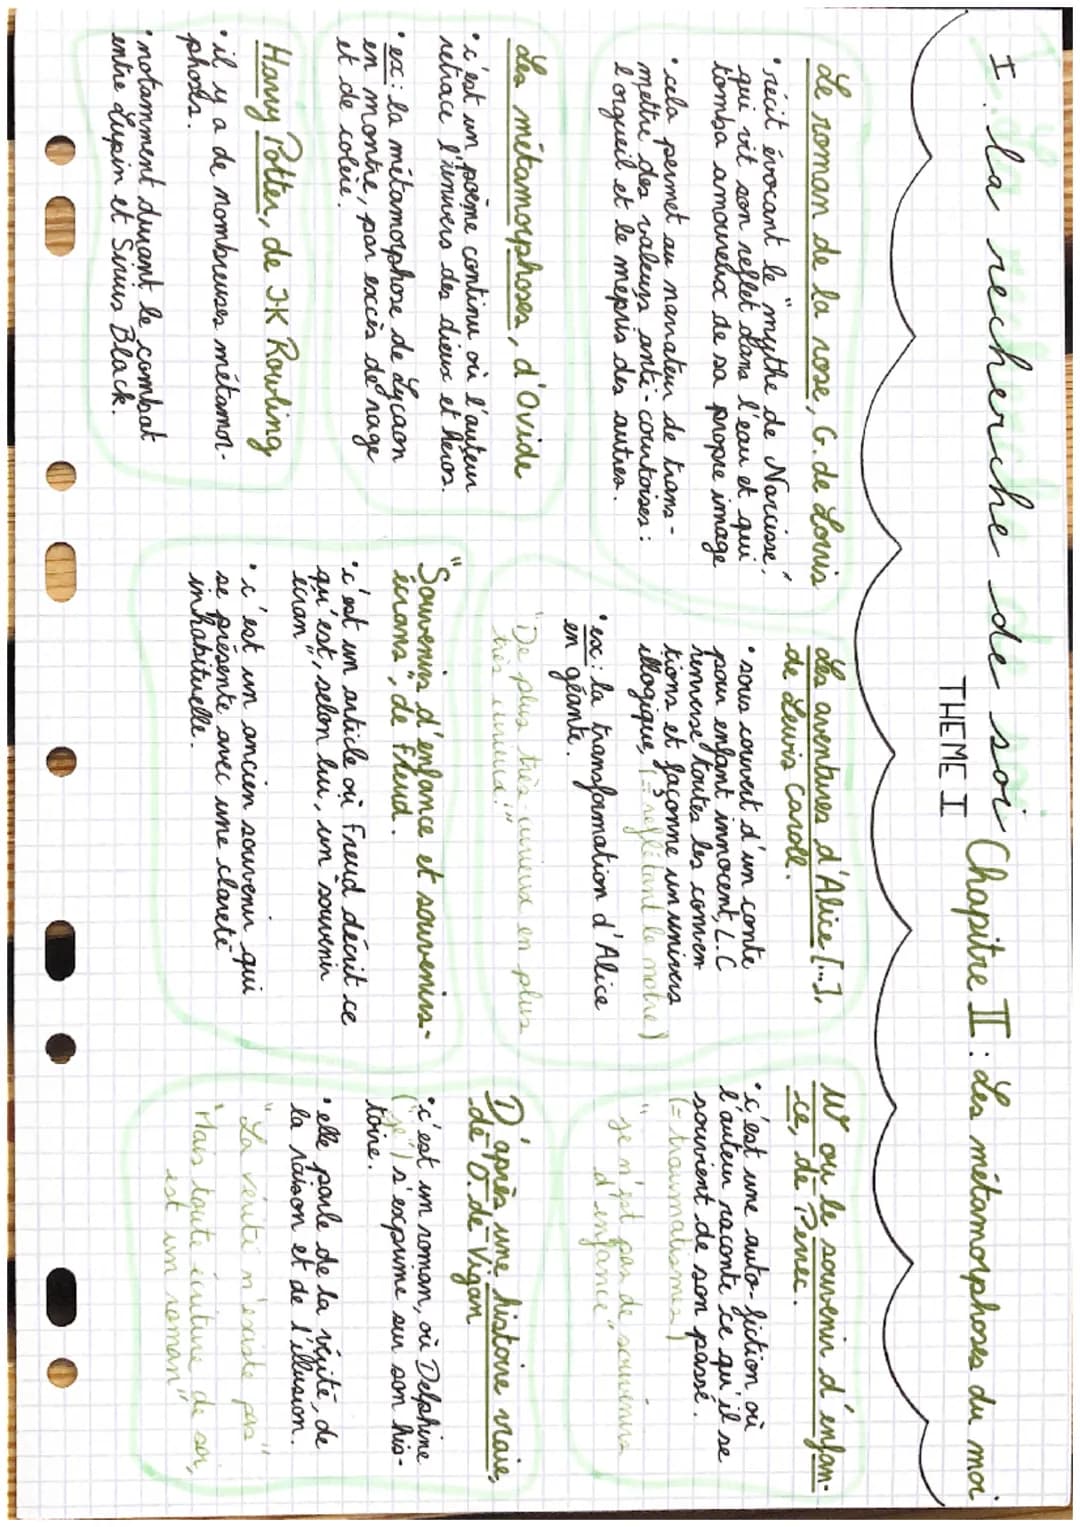 I. La recherche de soi
THEME I
Chapitre II : Les métamorphoses du moi
Le roman de la rose, G. de Lorris
• récit évoquant le "mythe de Narcisse,"
qui vit son reflet dans l'eau et qui
tomba amoureux de sa propre image
• cela permet au narrateur de trans-
mettre des valeurs anti-courtoises :
l'orgueil et le mépris des autres.
Les métamorphoses, d'Ovide
• c'est un poème continu où l'auteur
retrace l'univers des dieux et héros.
• ex : la métamorphose de Lycaon
en montre, par excès de rage
et de colère.
Harry Potter, de J-K Rowling
• il y a de nombreuses métamor-
phoses.
• notamment durant le combat
entre Lupin et Sirius Black.
Les aventures d'Alice [...],
de Lewis Caroll.
• sous couvert d'un conte
pour enfant innocent, L.C
renverse toutes les conven
tions et façonne un univers
illogique, (= reflétant le notre)
• ex : la transformation d'Alice
en géante.
"De plus très-curieux en plus
très curieux!"
"Souvenirs d'enfance et souvenirs-
écrans", de Freud.
• c'est un article où Freud décrit ce
qu'est, selon lui, un souvenir
écran"
• c'est un ancien souvenir qui
se présente avec une clareté
inhabituelle.
W ou le souvenir d'enfan-
ce, de Perrec.
• c'est une auto-fiction où
l'auteur raconte ce qu'il se
souvient de son passé.
(= traumatismes)
"je n'est pas de souvenirs
d'enfance"
D'après une histoire vraie,
de D. de Vigan
• c'est un roman, où Delphine
("je") s'exprime sur son his-
toire.
• elle parle de la vérité, de
la raison et de l'illusion.
"La vérité n'existe pas"
"Mais toute écriture de soi,
est un roman"